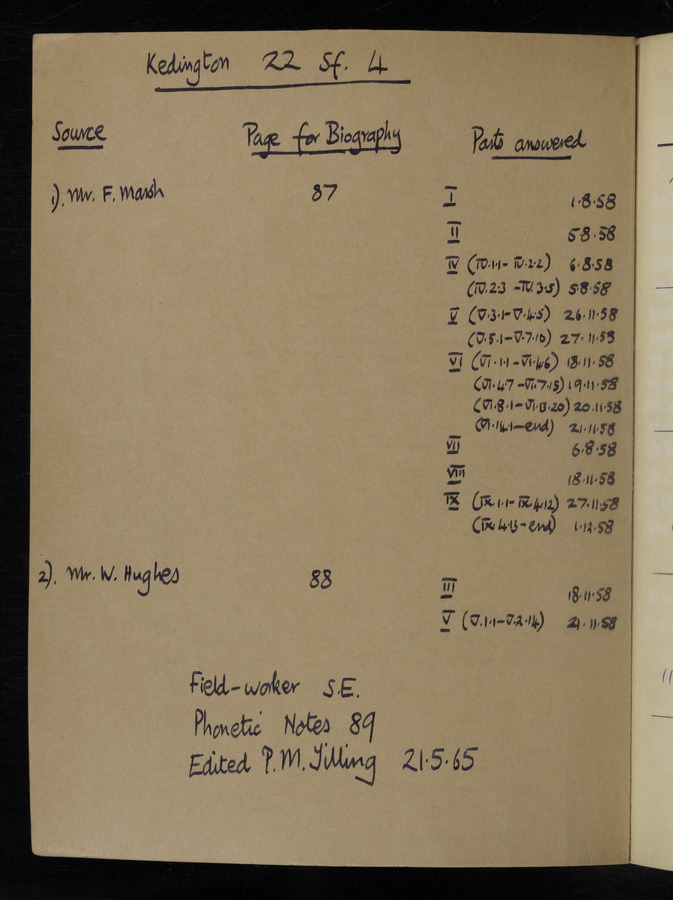 Kedington 22 Sf. 4
Source Page for Biography Parts answered
1). Mr. F. Marsh 87 I 1.8.58
II 5.8.58
IV (IV.1.1- IV.2.2) 6.8.58
(IV.2.3 -IV.3.5) 5.8.58
V (V.3.1-V.4.5) 26.11.58
(V.5.1-V.7.10) 27.11.58
VI (VI.1.1-VI.4.6) 18.11.58
(VI.4.7 -VI.7.15) 19.11.58
(VI.8.1-VI.13.20) 20.11.58
(VI.14.1-end) 21.11.58
VII 6.8.58
VIII 18.11.58
IX (IX.1.1-IX.4.12) 27.11.58
(IX.4.13-end) 1.12.58
2). Mr. W. Hughes 88 III 18.11.58
V (V.1.1-V.2.14) 21.11.58
Field-worker S.E.
Phonetic Notes 89
Edited P.M. Tilling 21.5.65